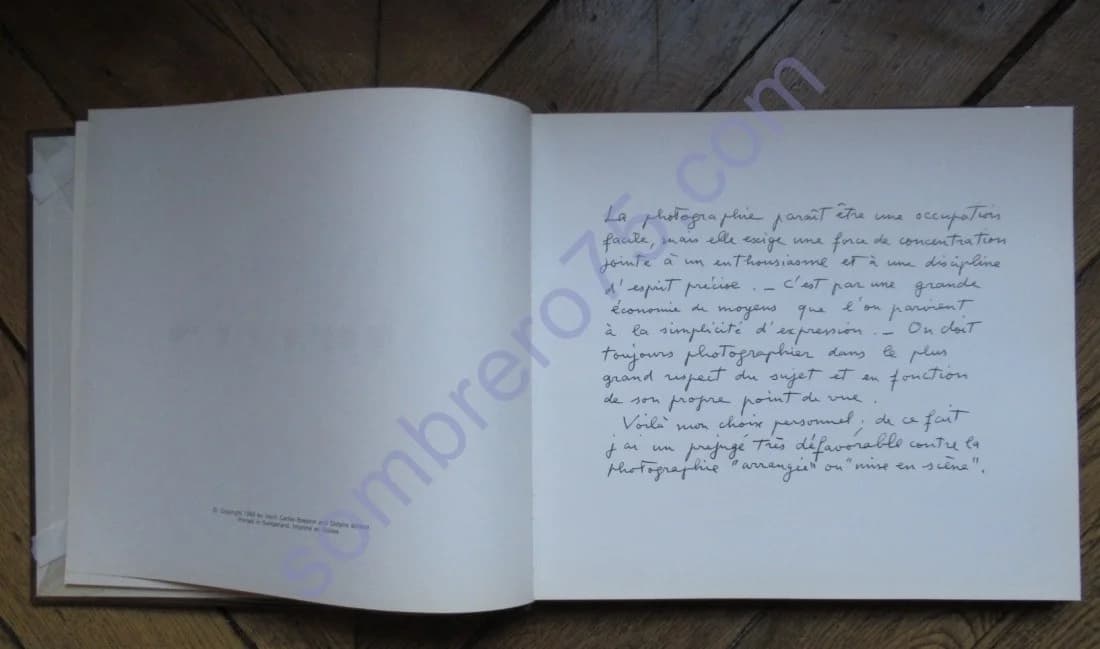 © Copyright 1968 by Henri Cartier-Bresson and Delpire éditeur
Printed in Switzerland, Imprimé en Suisse
La photographie paraît être une occupation
facile, mais elle exige une force de concentration
jointe à un enthousiasme et à une discipline
d'esprit précise. _ C'est par une grande
économie de moyens que l'on parvient
à la simplicité d'expression. _ On doit
toujours photographier dans le plus
grand respect du sujet et en fonction
de son propre point de vue.
Voilà mon choix personnel; de ce fait
j'ai un préjugé très défavorable contre la
photographie "arrangée" ou "mise en scène".
sombrero75.com